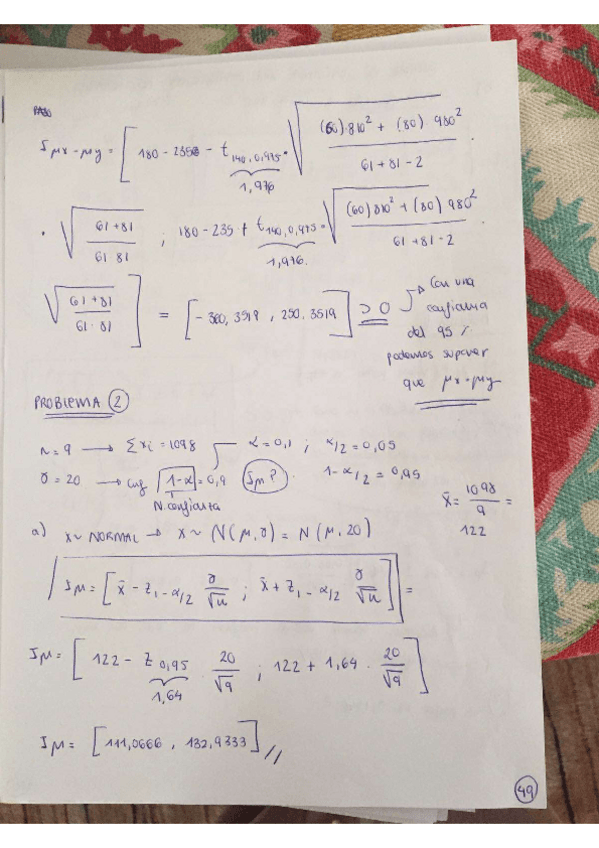 I μx-μy = [ 180 - 235 - t 140, 0,975 · √ (60)·810² + (80) 980² / 61 + 81 - 2 ·
1,976
· √ 61+81 / 61·81 ; 180 - 235 + t 140, 0,975 · √ (60) 810² + (80) 980² / 61+81-2
1,976.
√ 61+81 / 61·81 ] = [ - 360,3519 , 250,3519 ] ⊃ 0 → Con una
confianza
del 95 %
podemos suponer
que μx = μy
PROBLEMA 2
n = 9 → Σxi = 1098 α = 0,1 ; α/2 = 0,05
σ = 20 → Conf 1-α = 0,9 Iμ? 1 - α/2 = 0,95
N. confianza
x̄ = 1098 / 9 =
122
a) x ~ NORMAL → x ~ N(μ, σ) = N(μ, 20)
Iμ = [ x̄ - z 1-α/2 σ/√n ; x̄ + z 1-α/2 σ/√n ] =
Iμ = [ 122 - z 0,95 · 20/√9 ; 122 + 1,64 · 20/√9 ]
1,64
Iμ = [ 111,0666 , 132,9333 ] //
49